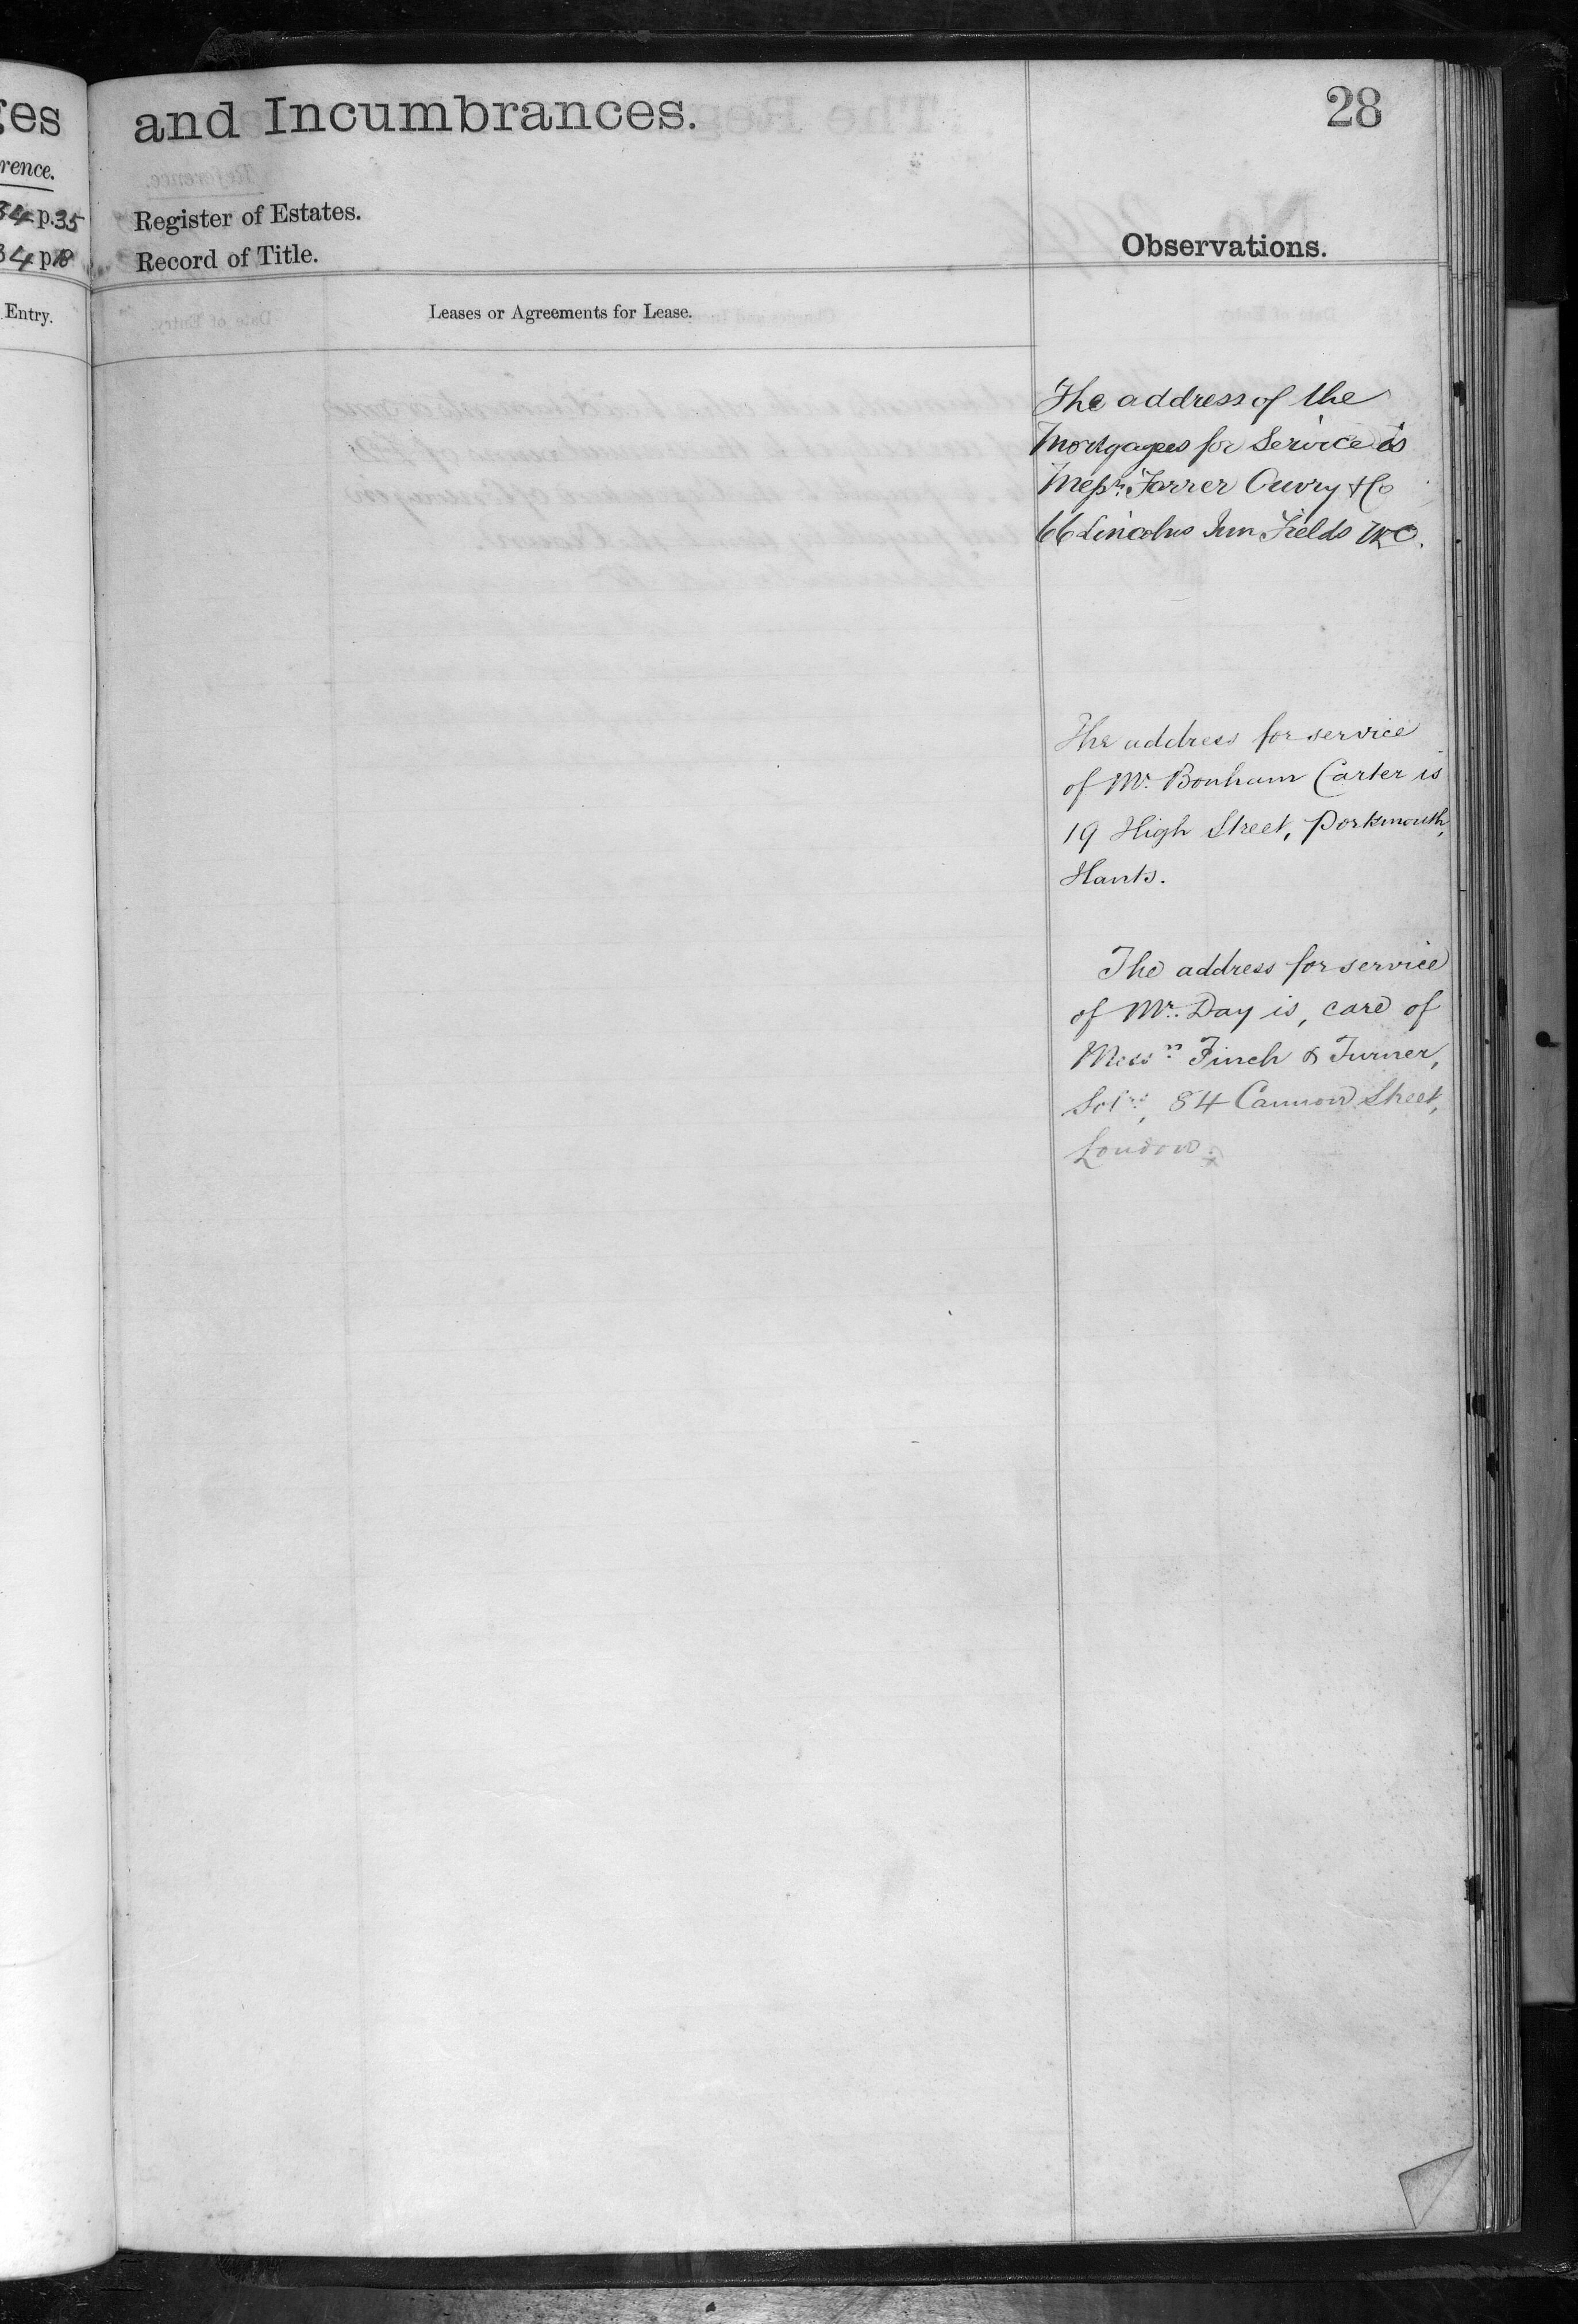 ges
rence.
34 p. 35
34 p 18
Entry.
and Incumbrances.
28
Register of Estates.
Record of Title.
Observations.
Leases or Agreements for Lease.
The address of the
Mortgagees for Service is
Messrs. Farrer Ouvry & Co
66 Lincolns Inn Fields W.C.
The address for service
of Mr. Bonham Carter is
19 High Street, Portsmouth,
Hants.
The address for service
of Mr. Day is, care of
Messrs. Finch & Turner,
Solrs., 84 Cannon Street,
London.